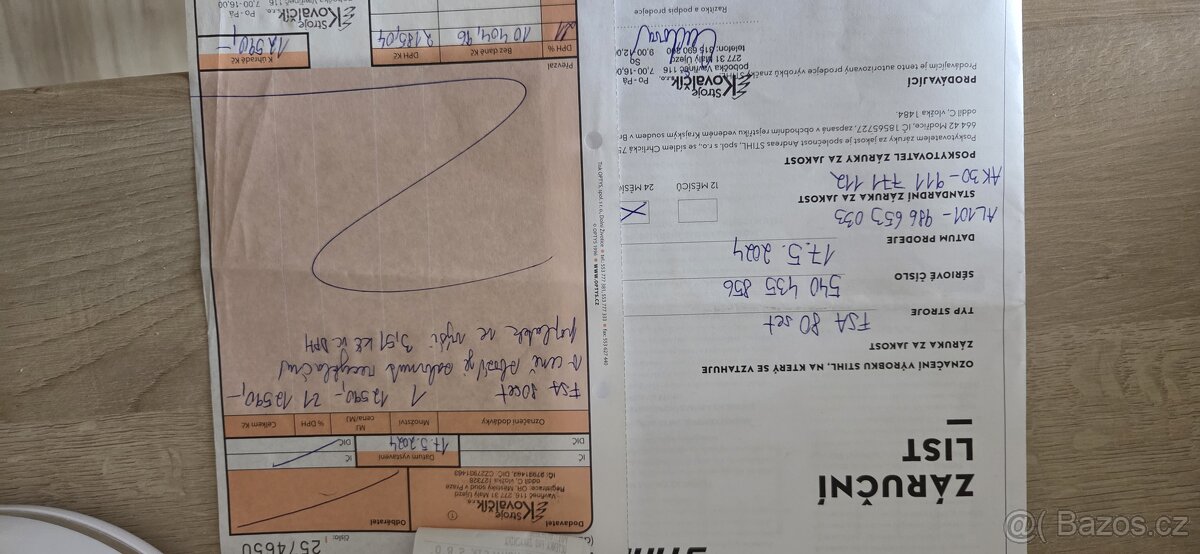 ZÁRUČNÍ
LIST
OZNAČENÍ VÝROBKU STIHL, NA KTERÝ SE VZTAHUJE
ZÁRUKA ZA JAKOST
TYP STROJE
FSA 80 set
SÉRIOVÉ ČÍSLO
540 435 856
DATUM PRODEJE
17.5.2024
AL101 - 986 653 033
STANDARDNÍ ZÁRUKA ZA JAKOST
12 MĚSÍCŮ
24 MĚSÍC
AK30 - 911 771 112
POSKYTOVATEL ZÁRUKY ZA JAKOST
Poskytovatelem záruky za jakost je společnost Andreas STIHL, spol. s r.o., se sídlem Chrlická 75
664 42 Modřice, IČ 18565727, zapsaná v obchodním rejstříku vedeném Krajským soudem v Br
oddíl C, vložka 1484.
PRODÁVAJÍCÍ
Prodávajícím je tento autorizovaný prodejce výrobků značky STIHL
Stroje
Kovalčík s.r.o.
pobočka Vavřineč 116
277 31 Malý Újezd
telefon: 315 690 860
Po - Pá
7.00-16.00
So
9.00-12.00
Razítko a podpis prodejce
číslo:
2574650
Dodavatel
1
Odběratel
Stroje
Kovalčík s.r.o.
Vavřineč 116, 277 31 Malý Újezd
Registrace: OR, Městský soud v Praze
oddíl C, vložka 127328
IČ: 27931463, DIČ: CZ27931463
IČ
DIČ
Datum vystavení
17.5.2024
IČ
DIČ
Označení dodávky
Množství
MJ
cena/MJ
% DPH
Celkem Kč
FSA 80 set
1
12590,-
21
12590,-
V ceně stroje zahrnut recyklační
poplatek ve výši 3,51 Kč vč. DPH
Tisk OPTYS, spol. s r.o., Dolní Životice
© OPTYS 1996 • WWW.OPTYS.CZ
Převzal
DPH %
Bez daně Kč
DPH Kč
K úhradě Kč
21
10 404,96
2 185,04
12 590,-
Stroje
Kovalčík s.r.o.
Po - Pá
7.00-16.00
Bazos.cz